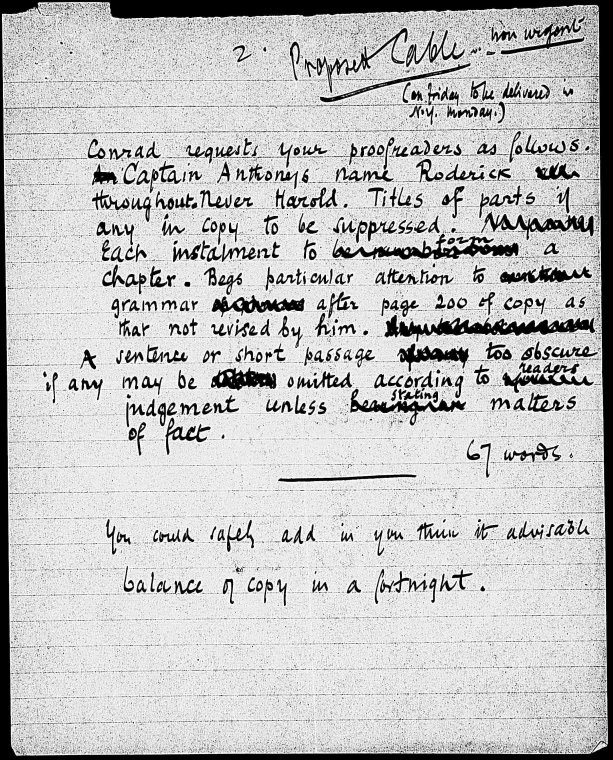 2. Proposed Cable... non urgent
(on friday to be delivered in
N.Y. Monday.)
Conrad requests your proofreaders as follows.
Captain Anthony's name Roderick
throughout. Never Harold. Titles of parts if
any in copy to be suppressed.
Each instalment to form a
chapter. Begs particular attention to
grammar after page 200 of copy as
that not revised by him.
A sentence or short passage too obscure
if any may be omitted according to readers
judgement unless stating matters
of fact.
67 words.
You could safely add if you think it advisable
balance of copy in a fortnight.